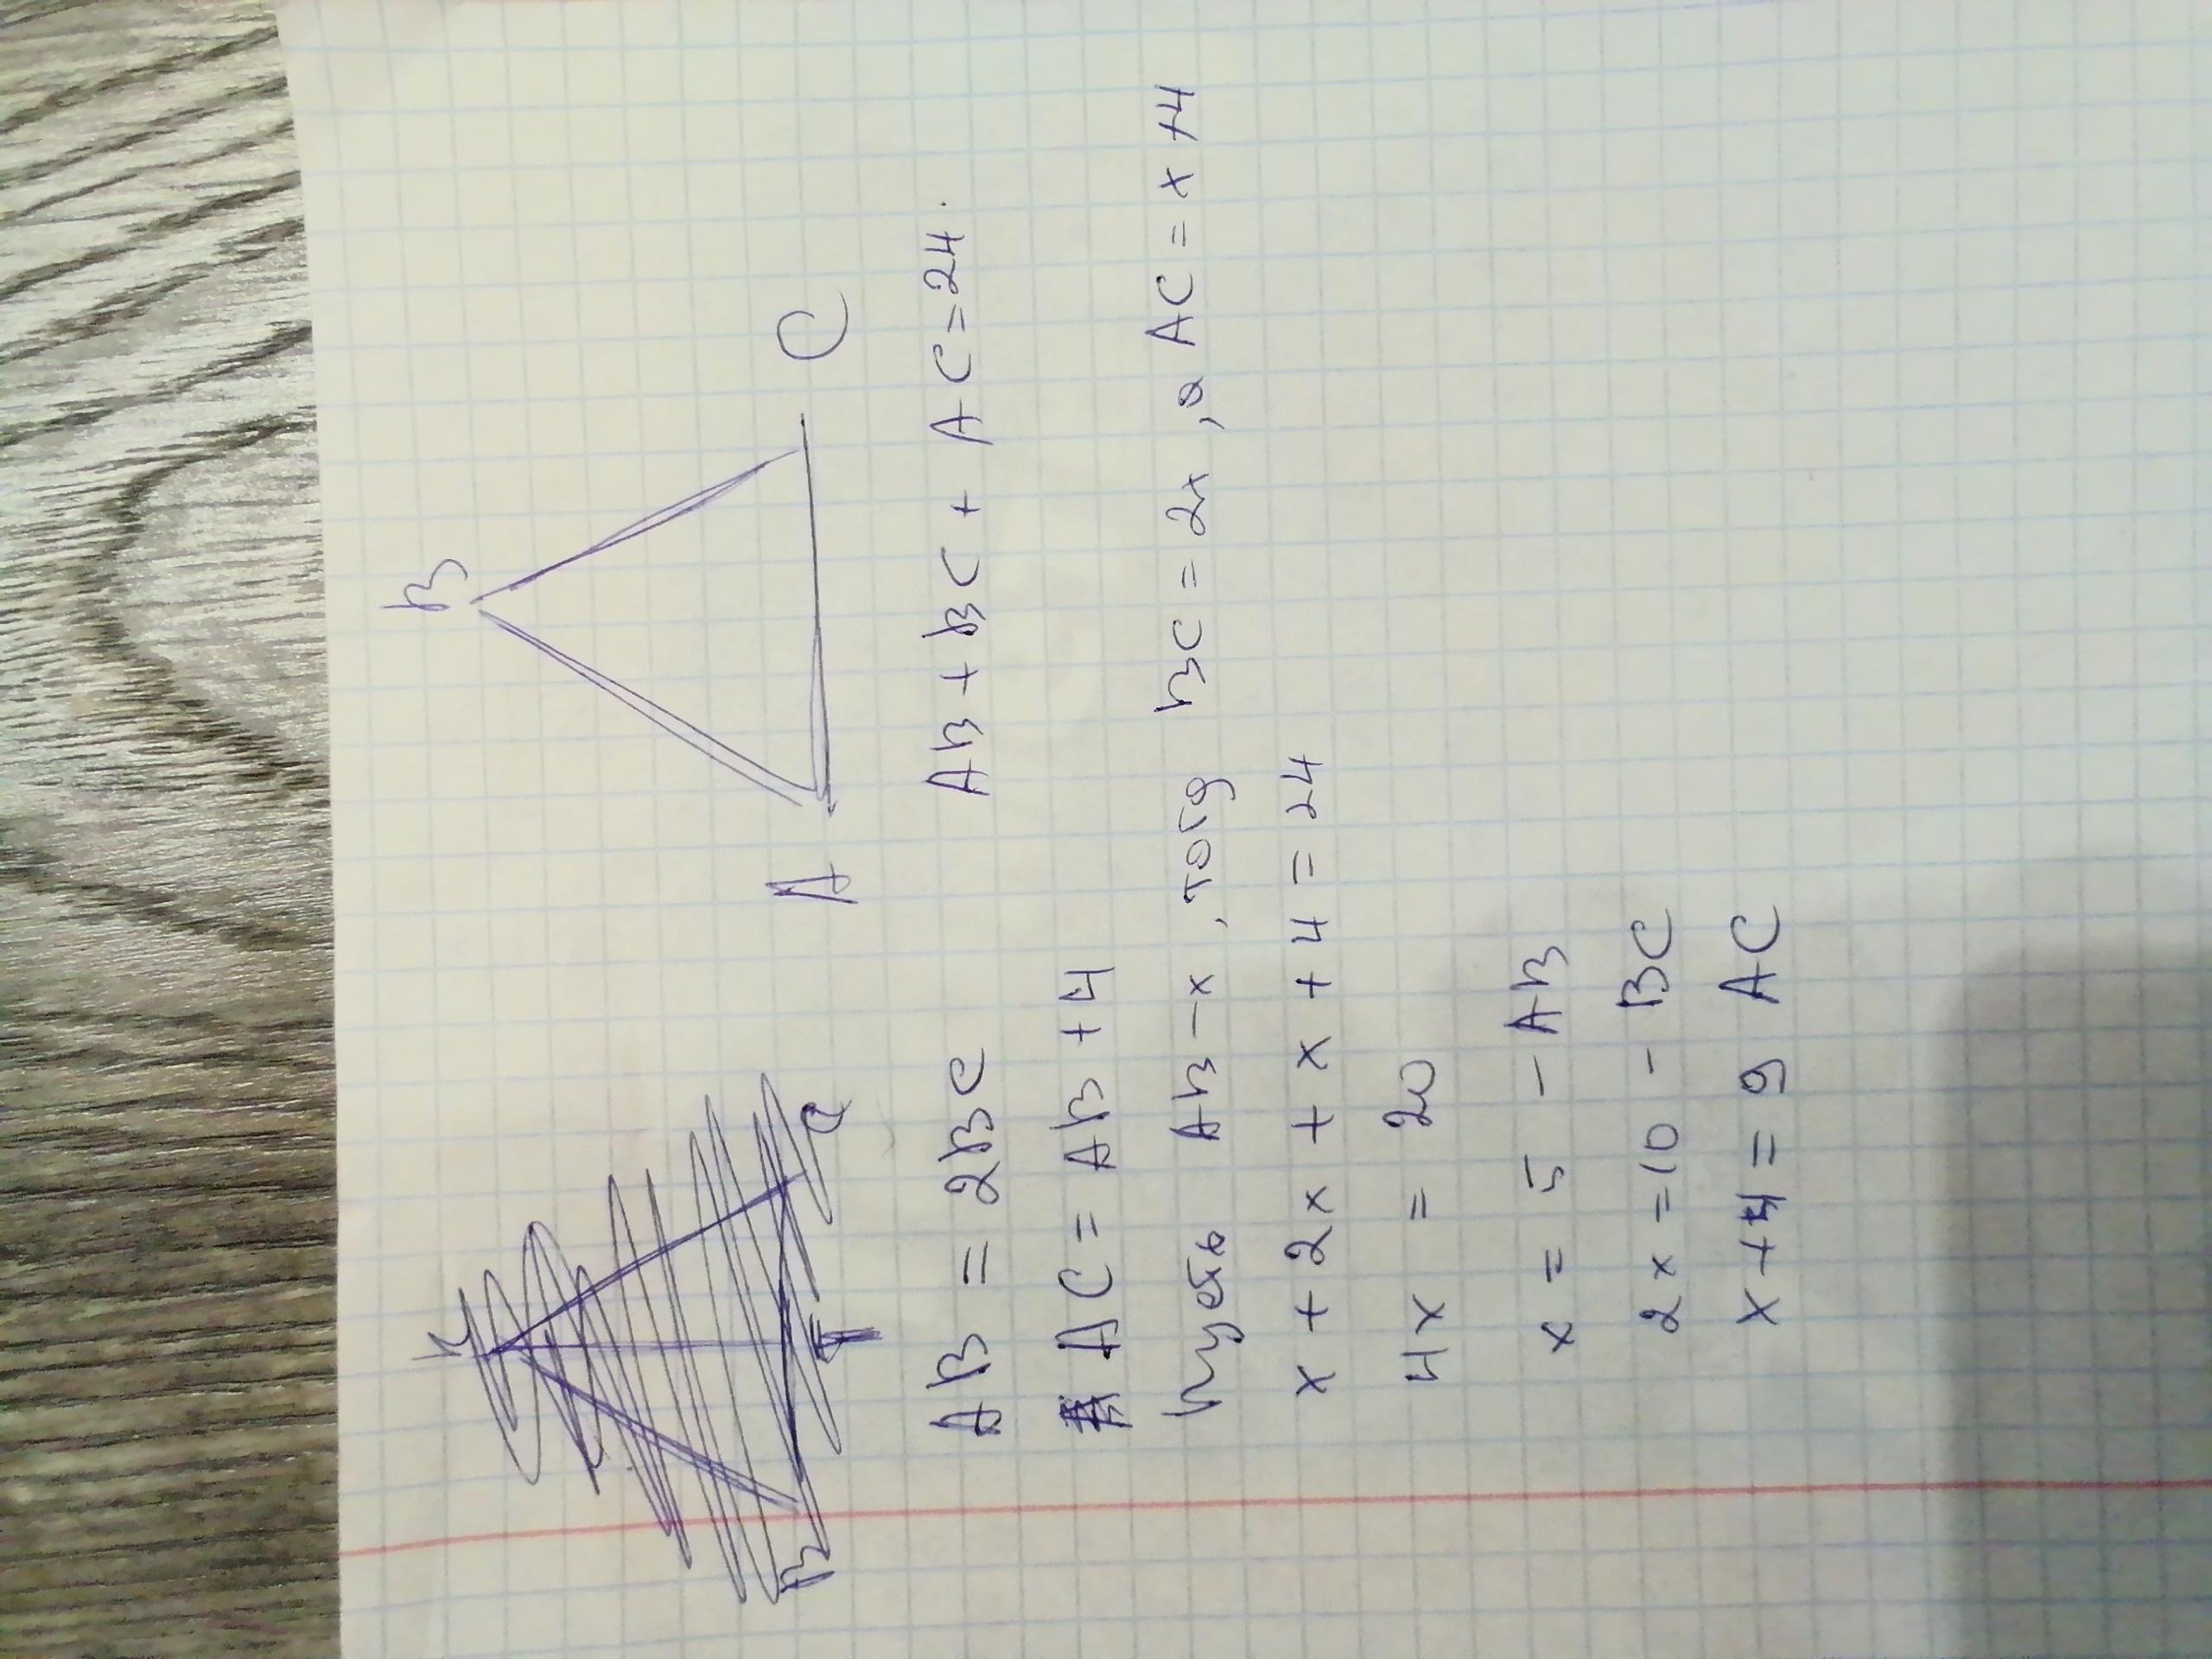 B
A C
AB = 2BC
AB + BC + AC = 24.
AC = AB + 4
пусть AB - x, тогд BC = 2x, а AC = x + 4
x + 2x + x + 4 = 24
4x = 20
x = 5 - AB
2x = 10 - BC
x + 4 = 9 AC